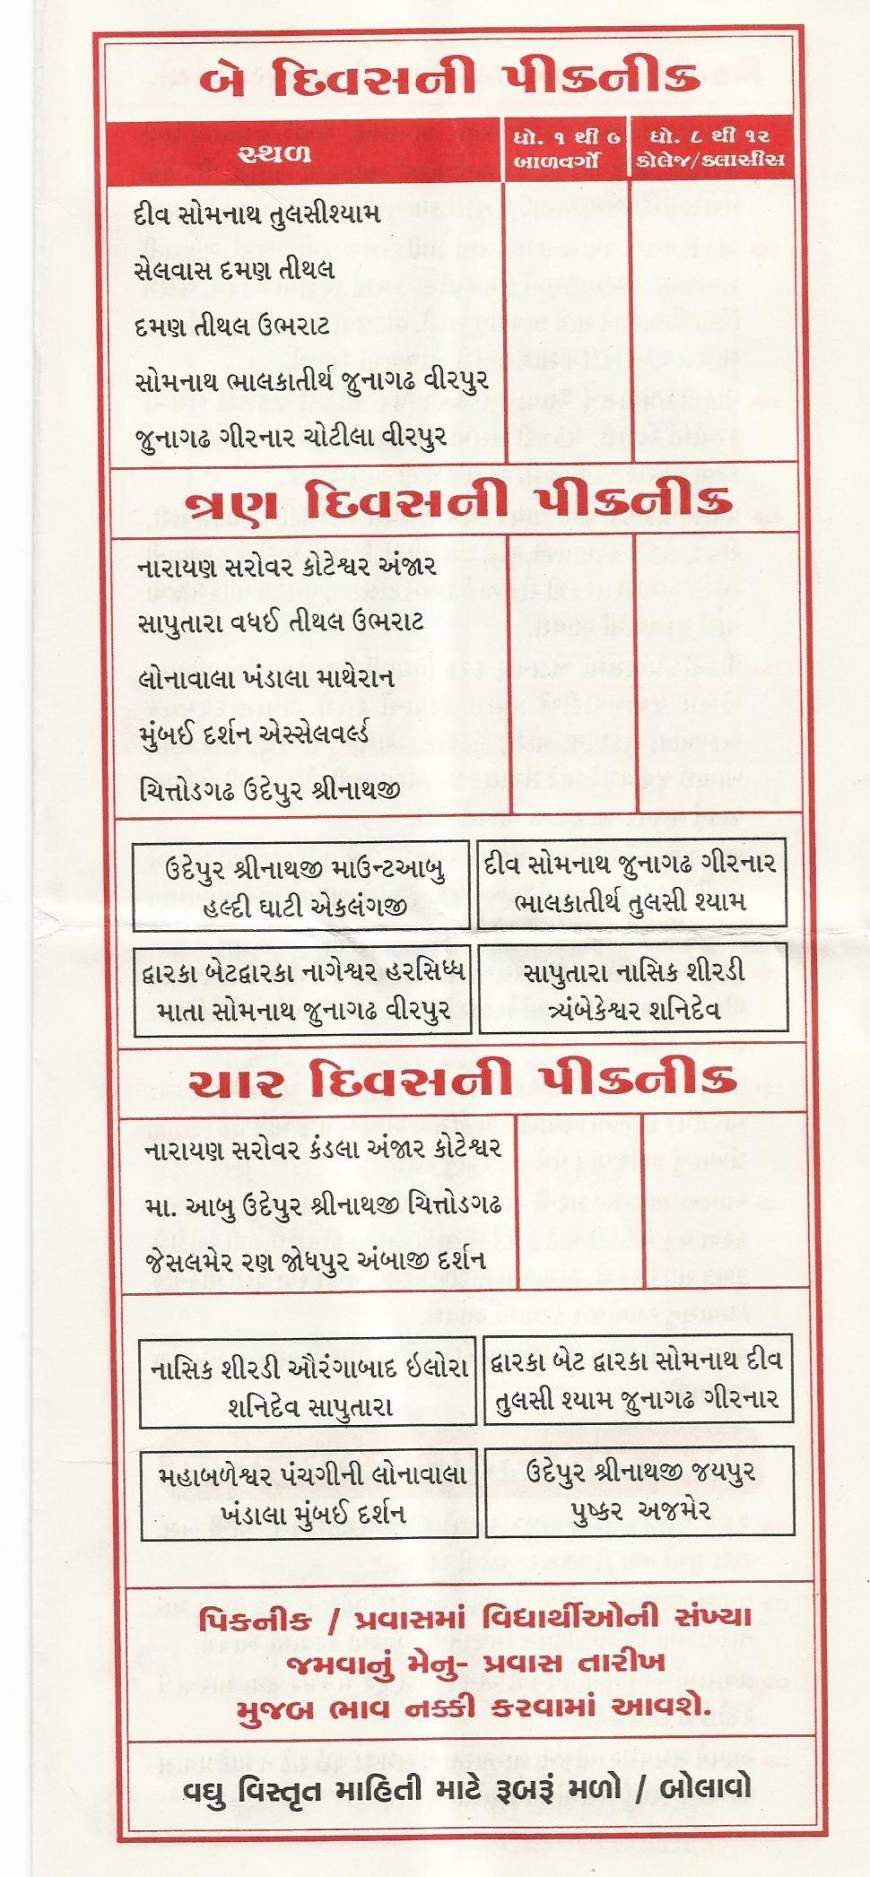 બે દિવસની પીકનીક
સ્થળ
ધો. ૧ થી ૭
બાળવર્ગો
ધો. ૮ થી ૧૨
કોલેજ/કલાસીસ
દીવ સોમનાથ તુલસીશ્યામ
સેલવાસ દમણ તીથલ
દમણ તીથલ ઉભરાટ
સોમનાથ ભાલકાતીર્થ જુનાગઢ વીરપુર
જુનાગઢ ગીરનાર ચોટીલા વીરપુર
ત્રણ દિવસની પીકનીક
નારાયણ સરોવર કોટેશ્વર અંજાર
સાપુતારા વધઈ તીથલ ઉભરાટ
લોનાવાલા ખંડાલા માથેરાન
મુંબઈ દર્શન એસ્સેલવર્લ્ડ
ચિત્તોડગઢ ઉદેપુર શ્રીનાથજી
ઉદેપુર શ્રીનાથજી માઉન્ટઆબુ
હલ્દી ઘાટી એકલંગજી
દીવ સોમનાથ જુનાગઢ ગીરનાર
ભાલકાતીર્થ તુલસી શ્યામ
દ્વારકા બેટદ્વારકા નાગેશ્વર હરસિધ્ધ
માતા સોમનાથ જુનાગઢ વીરપુર
સાપુતારા નાસિક શીરડી
ત્ર્યંબેકેશ્વર શનિદેવ
ચાર દિવસની પીકનીક
નારાયણ સરોવર કંડલા અંજાર કોટેશ્વર
મા. આબુ ઉદેપુર શ્રીનાથજી ચિત્તોડગઢ
જેસલમેર રણ જોધપુર અંબાજી દર્શન
નાસિક શીરડી ઓરંગાબાદ ઇલોરા
શનિદેવ સાપુતારા
દ્વારકા બેટ દ્વારકા સોમનાથ દીવ
તુલસી શ્યામ જુનાગઢ ગીરનાર
મહાબળેશ્વર પંચગીની લોનાવાલા
ખંડાલા મુંબઈ દર્શન
ઉદેપુર શ્રીનાથજી જયપુર
પુષ્કર અજમેર
પિકનીક / પ્રવાસમાં વિદ્યાર્થીઓની સંખ્યા
જમવાનું મેનુ- પ્રવાસ તારીખ
મુજબ ભાવ નક્કી કરવામાં આવશે.
વધુ વિસ્તૃત માહિતી માટે રૂબરૂં મળો / બોલાવો